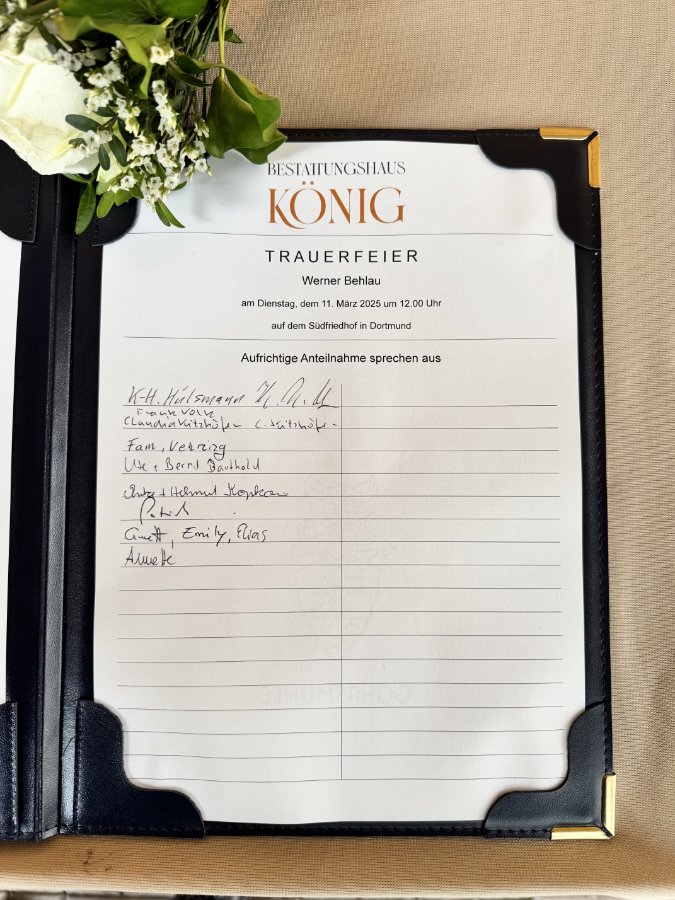 BESTATTUNGSHAUS
KÖNIG
TRAUERFEIER
Werner Behlau
am Dienstag, dem 11. März 2025 um 12.00 Uhr
auf dem Südfriedhof in Dortmund
Aufrichtige Anteilnahme sprechen aus
K-H. Hülsmann
Frank Volk
Claudia Kitzhöfer C. Kitzhöfer
Fam.
Ute + Bernd Bauthold
+ Helmut
Anett, Emily, Elias
Annette